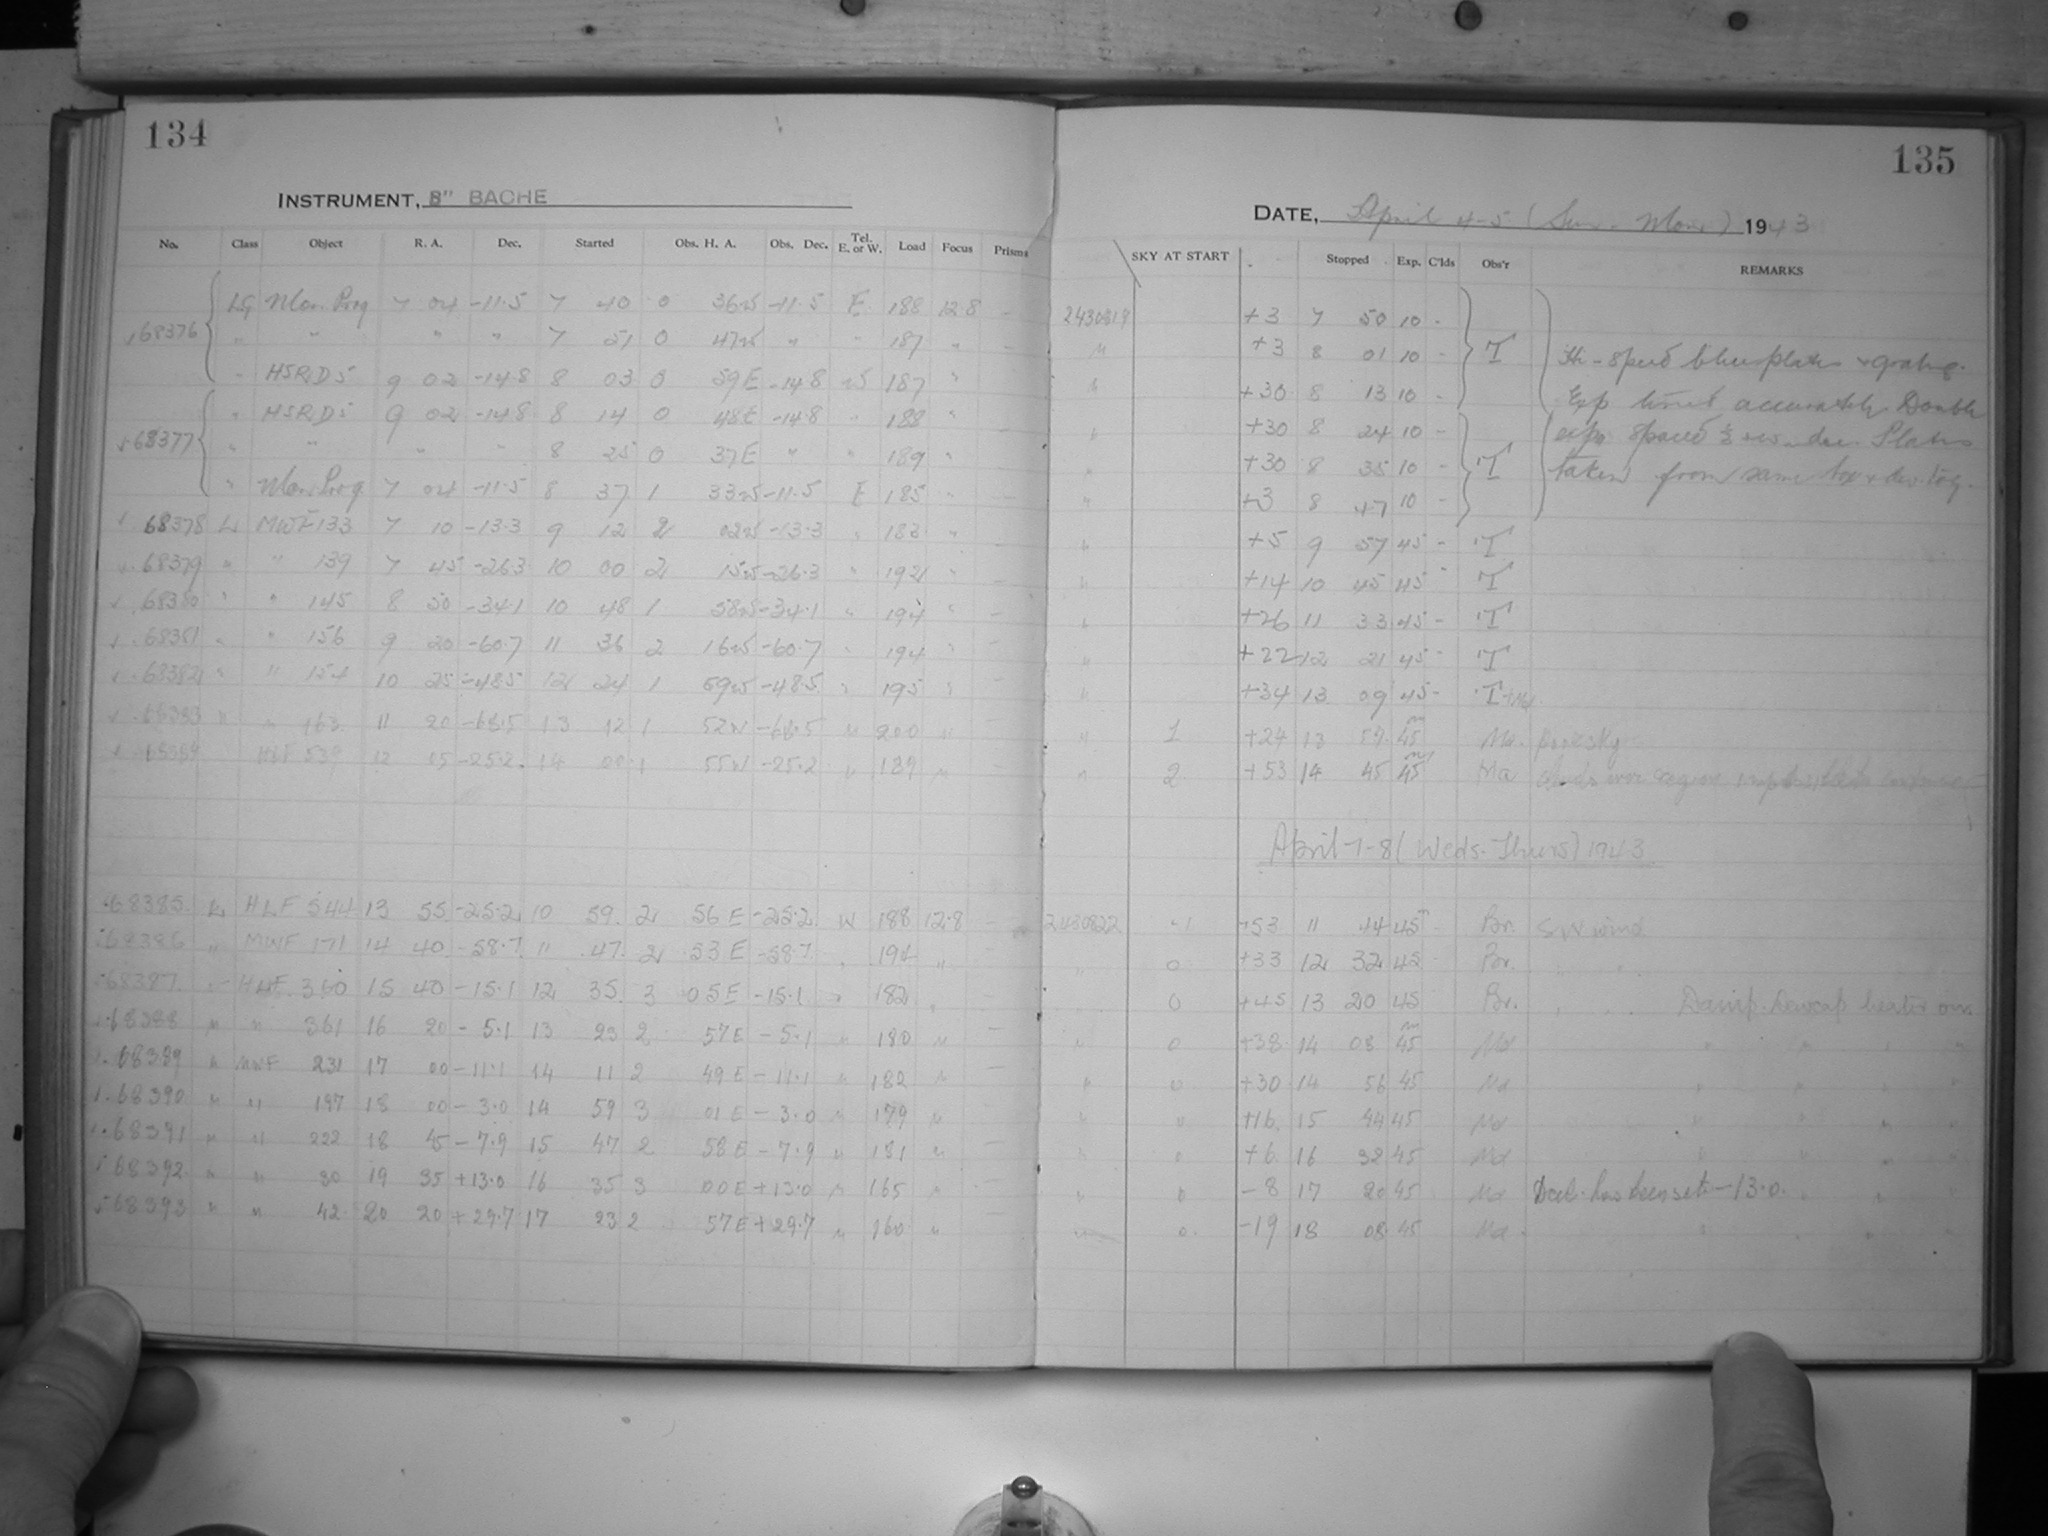 134
INSTRUMENT, 8" BACHE
No. Class Object R. A. Dec. Started Obs. H. A. Obs. Dec. Tel. E. or W. Load Focus Prisms
68376 LG Mon. Prog 7 04 -11.5 7 40 0 36W -11.5 E 188 12.8 –
" " " " 7 51 0 47W " " 187 " –
" HSRD5 9 02 -14.8 8 03 0 59E -14.8 W 187 "
68377 " HSRD5 9 02 -14.8 8 14 0 48E -14.8 " 188 "
" " " " 8 25 0 37E " " 189 "
" Mon. Prog 7 04 -11.5 8 37 1 33W -11.5 E 185 " –
68378 L MWF 133 7 10 -13.3 9 12 2 02W -13.3 " 183 " –
68379 " " 139 7 45 -26.3 10 00 2 15W -26.3 " 192 " –
68380 " " 145 8 50 -34.1 10 48 1 58W -34.1 " 194 " –
68381 " " 156 9 20 -60.7 11 36 2 16W -60.7 " 194 " –
68382 " " 154 10 25 -48.5 12 24 1 59W -48.5 " 195 " –
68383 " " 163 11 20 -68.5 13 12 1 52W -68.5 " 200 " –
68384 HLF 539 12 05 -25.2 14 00 1 55W -25.2 " 189 " –
68385 L HLF 544 13 55 -25.2 10 59 2 56E -25.2 W 188 12.8 –
68386 " MWF 171 14 40 -58.7 11 47 2 53E -58.7 " 194 " –
68387 – HLF 360 15 40 -15.1 12 35 3 05E -15.1 " 182 " –
68388 " " 361 16 20 -5.1 13 23 2 57E -5.1 " 180 " –
68389 " MWF 231 17 00 -11.1 14 11 2 49E -11.1 " 182 " –
68390 " " 197 18 00 -3.0 14 59 3 01E -3.0 " 179 " –
68391 " " 222 18 45 -7.9 15 47 2 58E -7.9 " 181 " –
68392 " " 30 19 35 +13.0 16 35 3 00E +13.0 " 165 " –
68393 " " 42 20 20 +29.7 17 23 2 57E +29.7 " 160 " –
135
DATE, April 4-5 (Sun. - Mon.) 1943
SKY AT START Stopped Exp. C'lds Obs'r REMARKS
2430819 +3 7 50 10 -
" +3 8 01 10 - T Hi-speed blue plates + grating.
" +30 8 13 10 - Exp timed accurately. Double
" +30 8 24 10 - exps spaced
" +30 8 35 10 - T taken from same box + dev. tog.
" +3 8 47 10 -
" +5 9 57 45 - T
" +14 10 45 45 - T
" +26 11 33 45 - T
" +22 12 21 45 - T
" +34 13 09 45 - T+Ma
" 1 +24 13 57 45 Ma. Poor sky
" 2 +53 14 45 45 Ma clouds over region
April 7-8 (Weds. - Thurs) 1943
2430822 -1 +53 11 44 45 Br. SW wind
" 0 +33 12 32 45 Br. " "
0 +45 13 20 45 Br. " " Damp. Dewcap heater on.
" 0 +38 14 08 45 Ma " " " "
" 0 +30 14 56 45 Ma " " " "
" 0 +16 15 44 45 Ma " " " "
" 0 +6 16 32 45 Ma " " " "
" 0 -8 17 20 45 Ma Decl. has been set -13.0. " "
" 0 -19 18 08 45 Ma " " " "